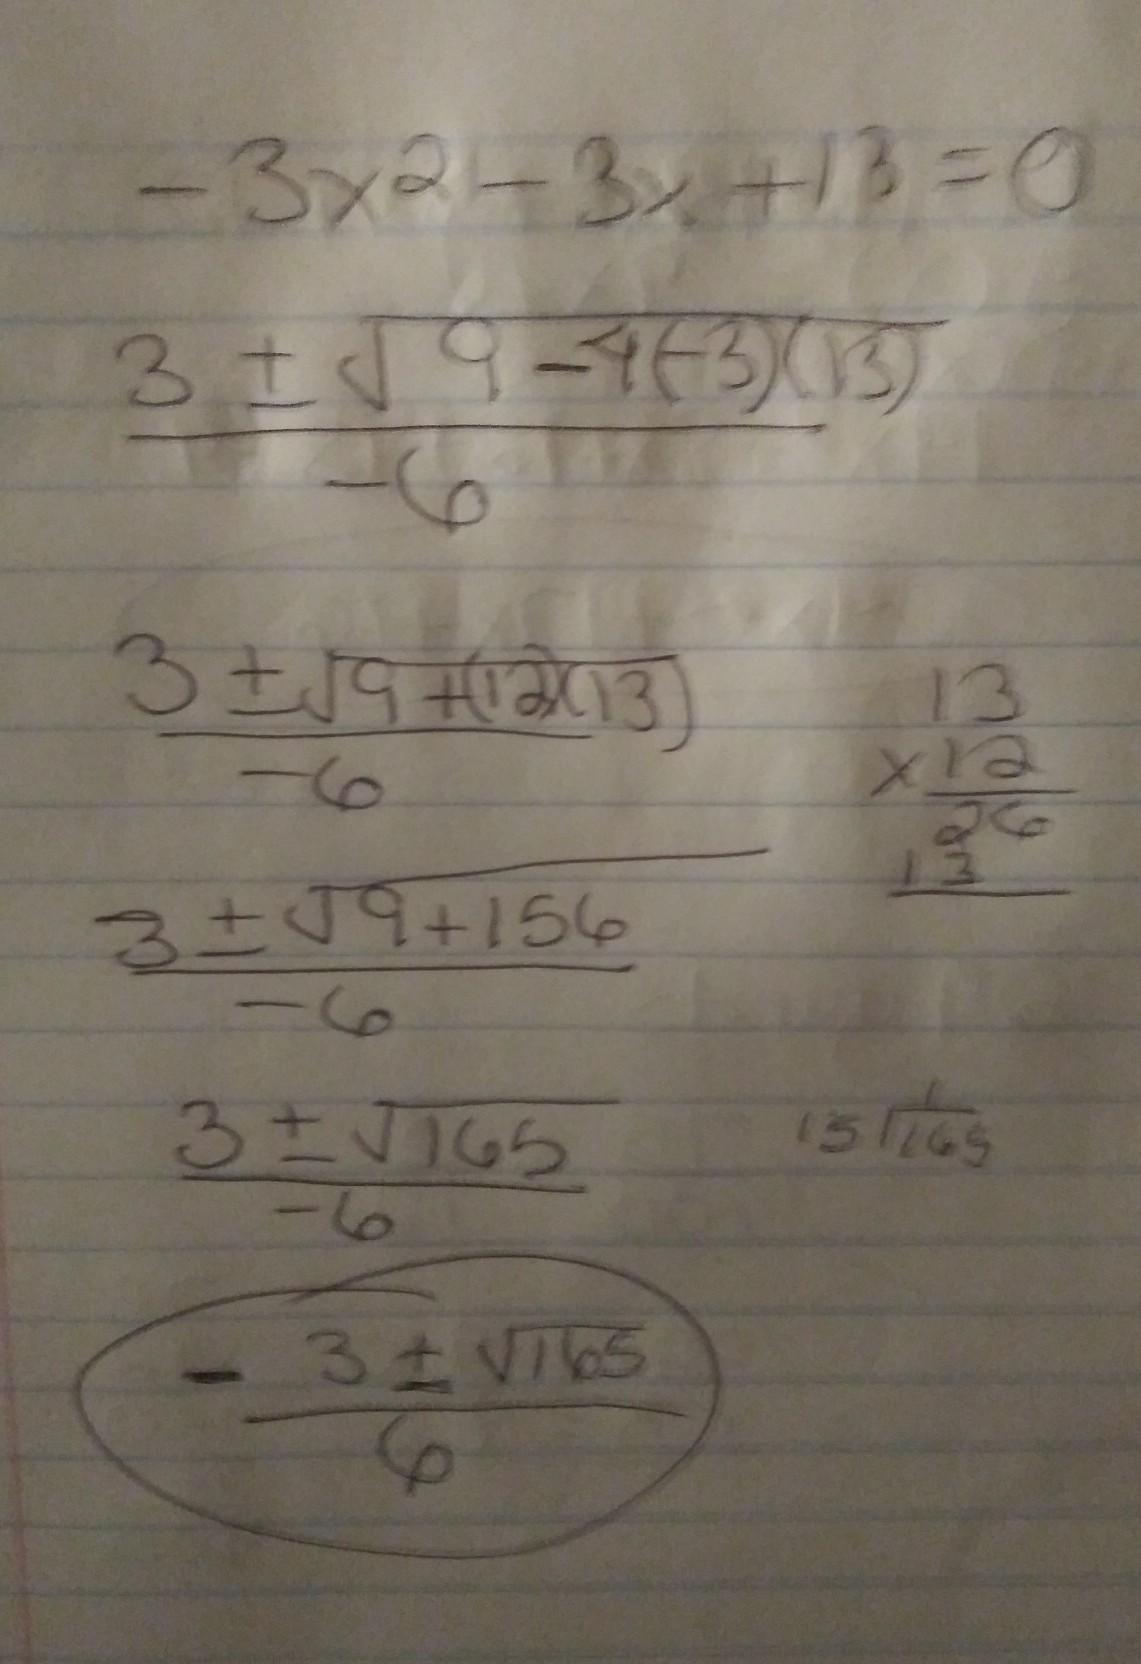 -3x2-3x+13=0
3 ± √9-4(-3)(13)
-6
3 ± √9+(12)(13)
-6
13
x 12
26
13
3 ± √9+156
-6
3 ± √165
-6
1
15 √165
- 3 ± √165
6